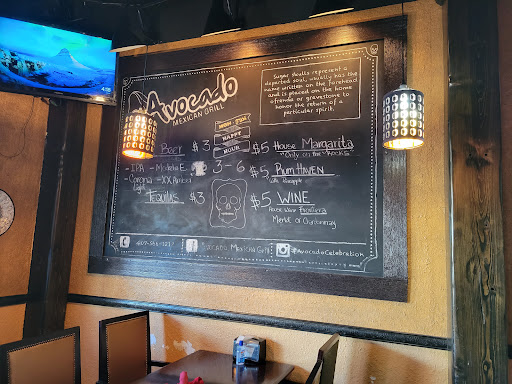 Avocado
MEXICAN GRILL
Sugar Skulls represent a
departed soul, usually has the
name written on the forehead
and is placed on the home
ofrenda or gravestone to
honor the return of a
particular spirit.
HAPPY
HOUR
3-6
Beer $3
- IPA - Modelo E.
- Corona - XX Ambar
Light
TEQUILAS $3
$5 House Margarita
"Only on the Rocks"
$5 RumHaven
w/ Pineapple
$5 WINE
House Wine
Merlot or Chardonnay
Avocado Mexican Grill
@AvocadoCelebration
4:05